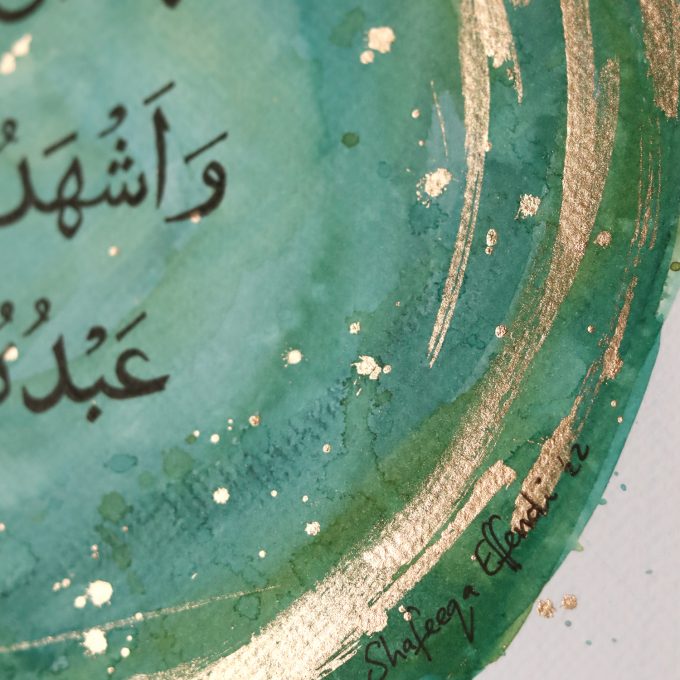 وَاَشْهَدُ
عَبْدُهُ
Shafeeqa Effendi '22